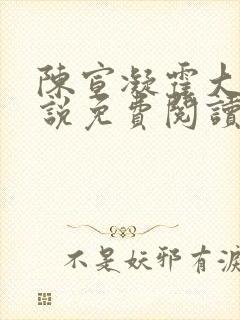 陳宣凝霜大
說免費閱讀
不是妖邪有淚